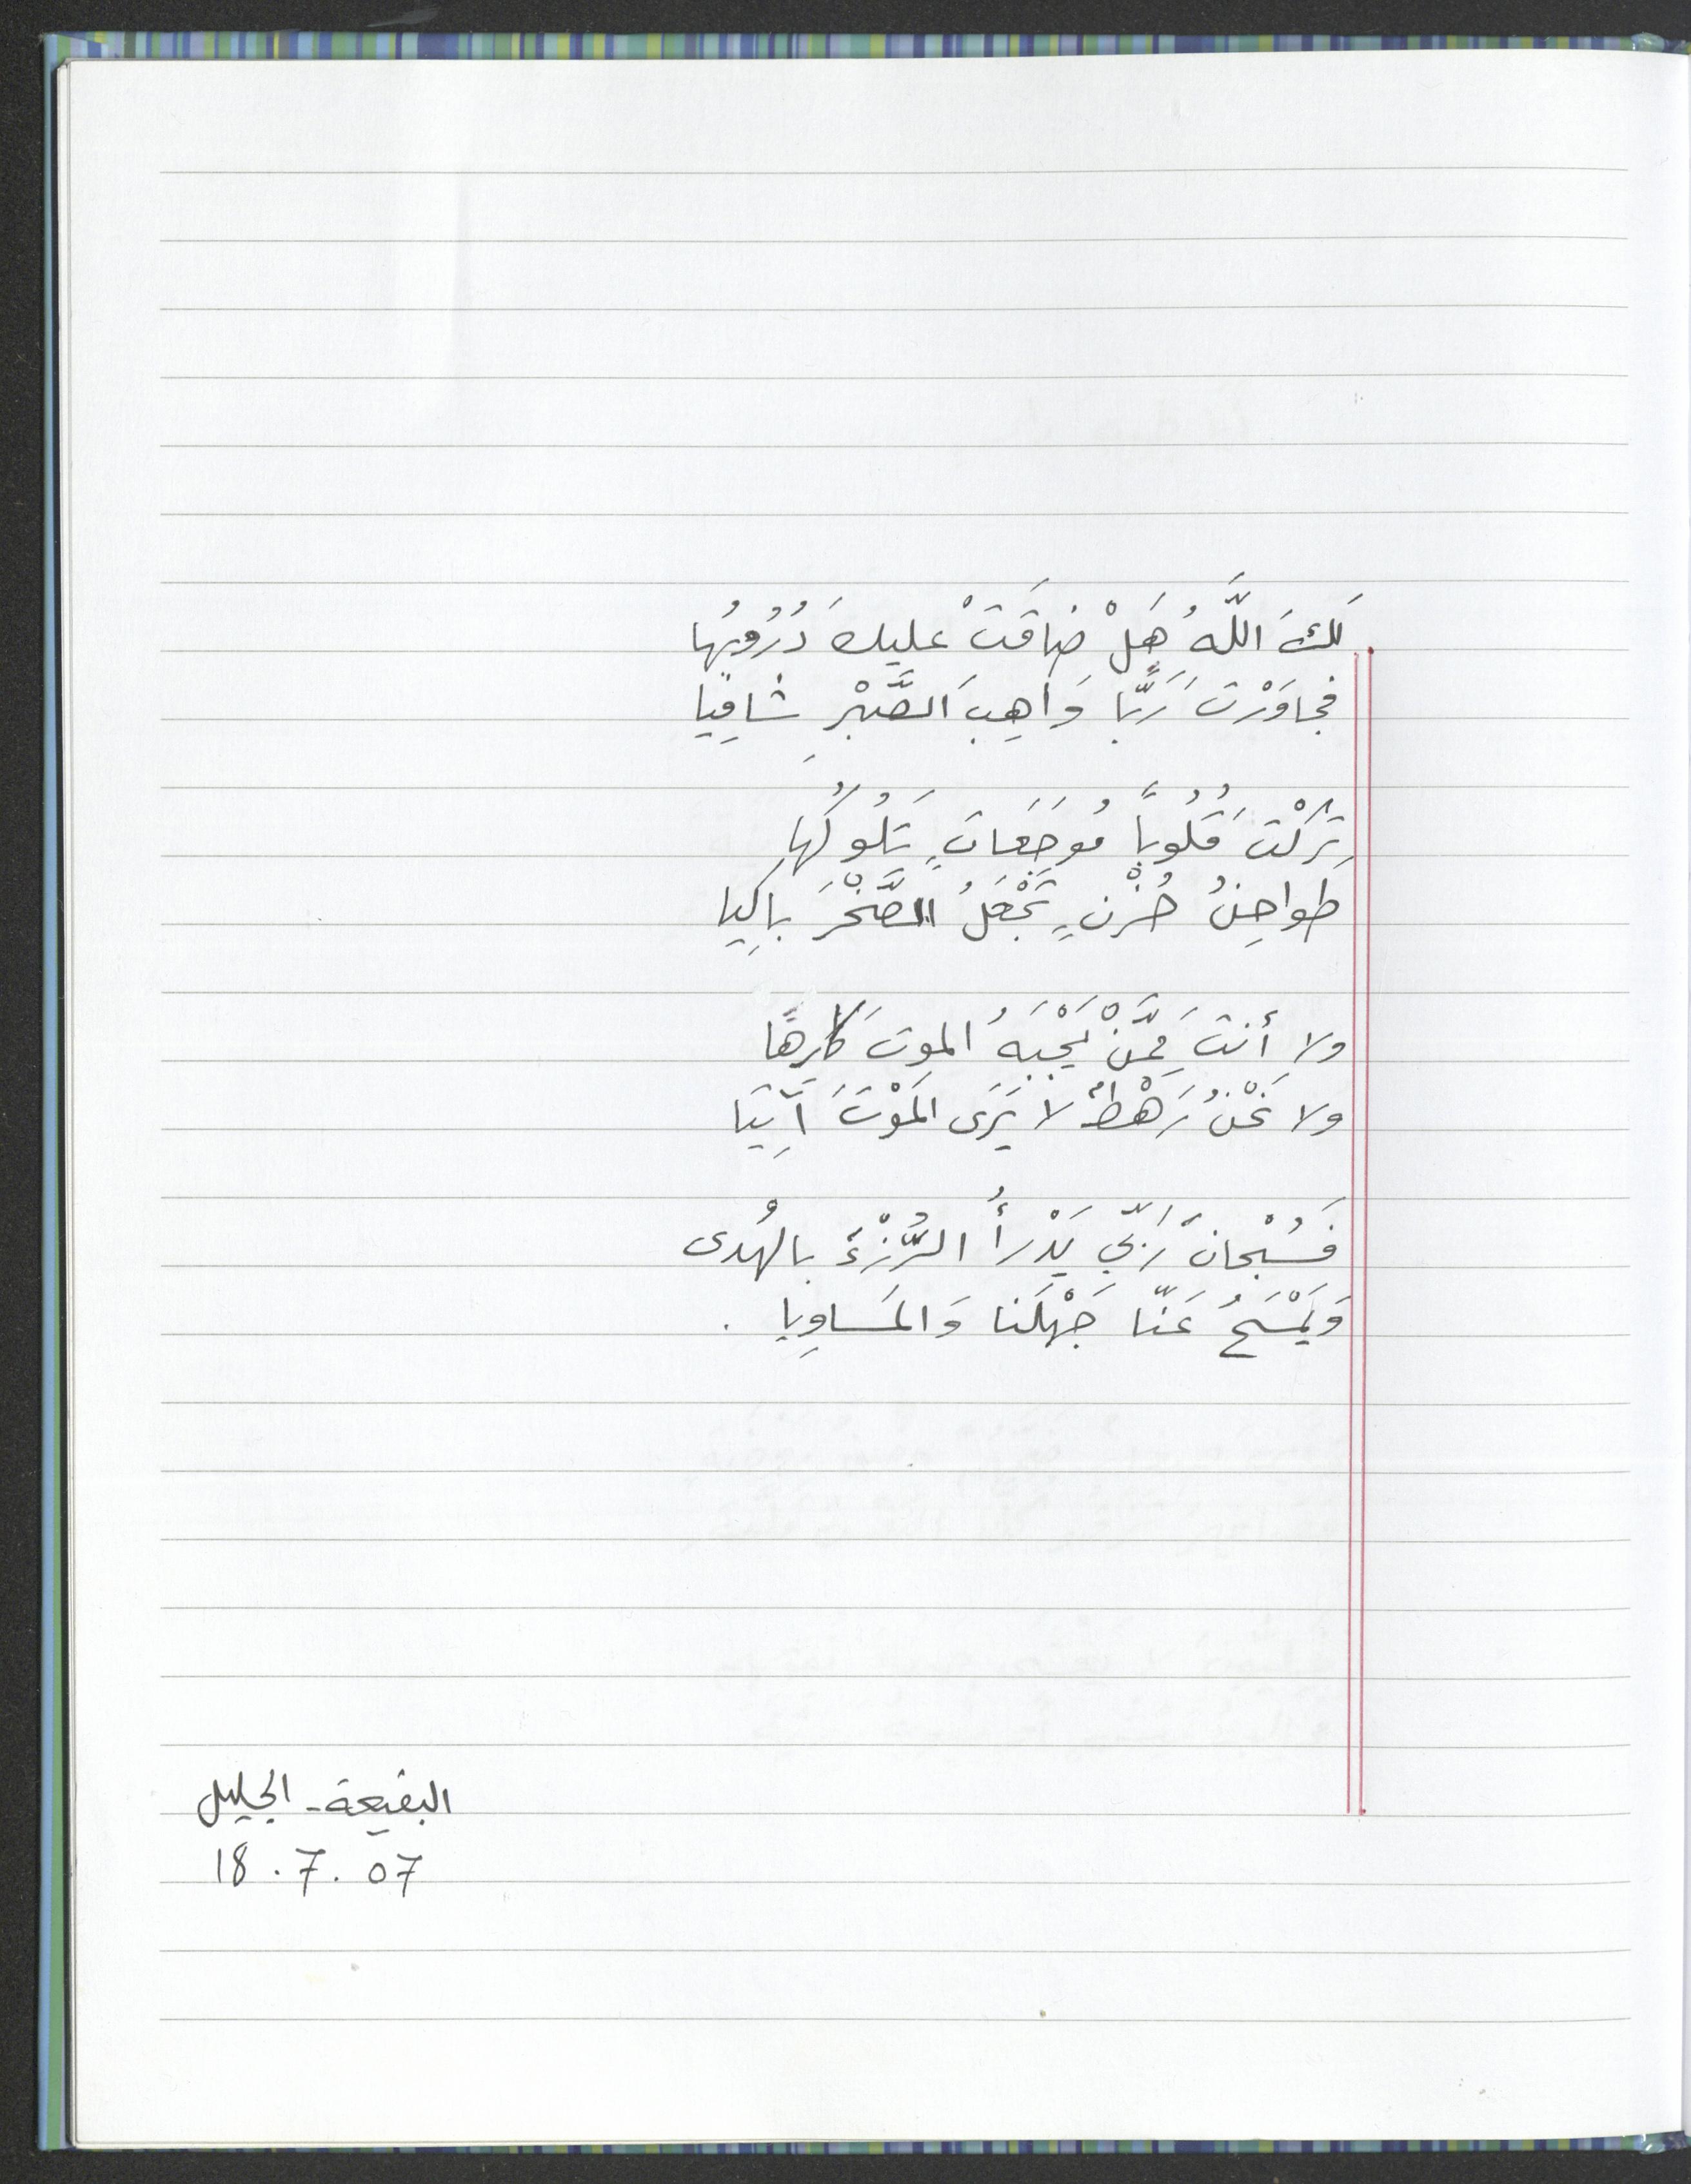 لَكَ اللَّهُ هَلْ ضاقَتْ عليكَ دُرُوبُها
فجاوَرْتَ رَبًّا وَاهِبَ الصَّبْرِ شافِيًا
تَرَكْتَ قُلُوبًا مُوجَعَاتٍ تَلُوكُها
طواحِنُ حُزْنٍ تَجْعَلُ الصَّخْرَ باكِيا
ولا أنتَ مِمَّنْ يَجْبَهُ الموتَ كارِهًا
ولا نَحْنُ رَهْطٌ لا يَرَى المَوْتَ آتِيَا
فَسُبْحانَ رَبّي يَدْرَأُ الرُّزْءَ بالهُدى
وَيَمْسَحُ عَنّا جَهْلَنا وَالمَساوِيا .
البقيعة - الجليل
18.7.07